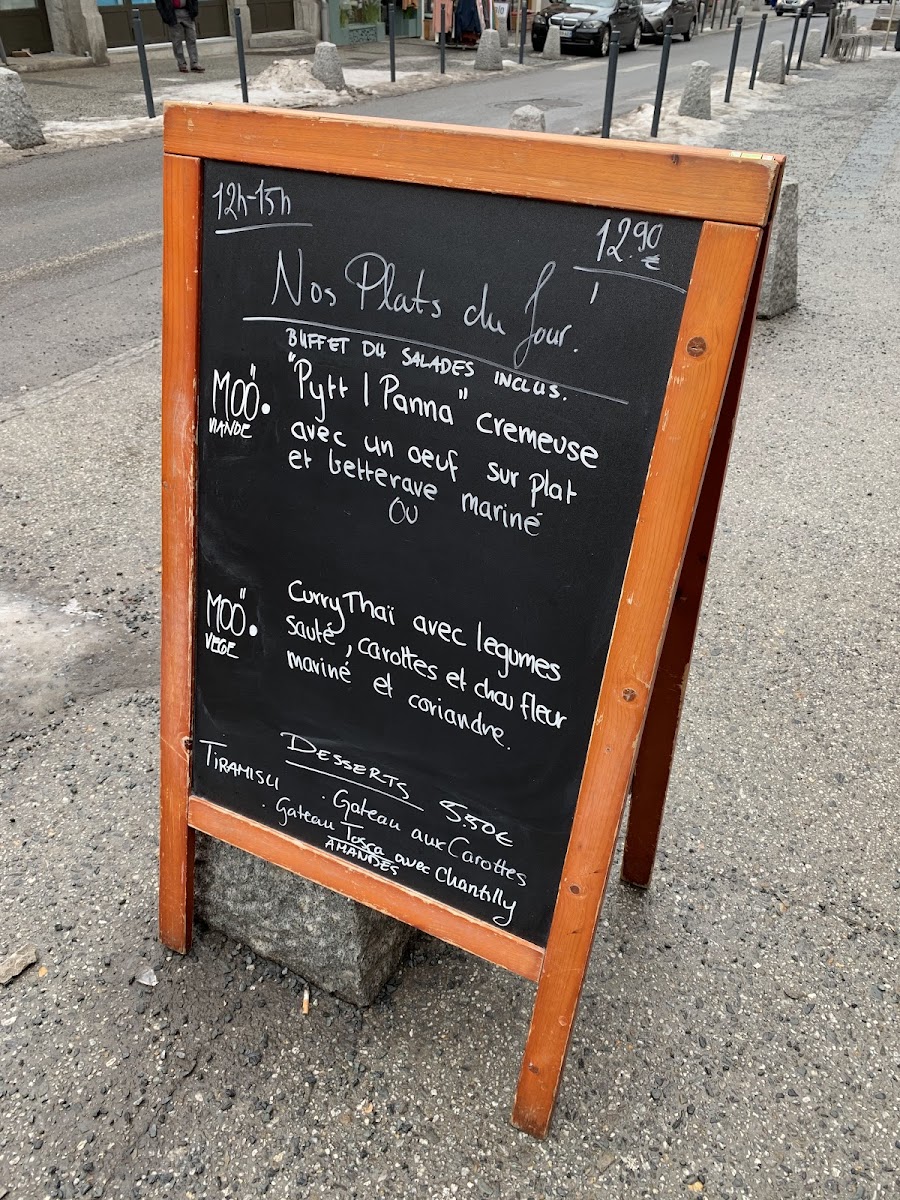 12h-15h
12.90 €
Nos Plats du Jour.
BUFFET DU SALADES INCLUS.
MOÖ.
VIANDE
"Pytt I Panna" cremeuse
avec un oeuf sur plat
et betterave mariné
OU
MOÖ.
VEGE
Curry Thaï avec legumes
sauté, carottes et chou fleur
mariné et coriandre.
DESSERTS 5.50€
TIRAMISU
. Gateau aux Carottes
. Gateau Tosca avec Chantilly
AMANDES